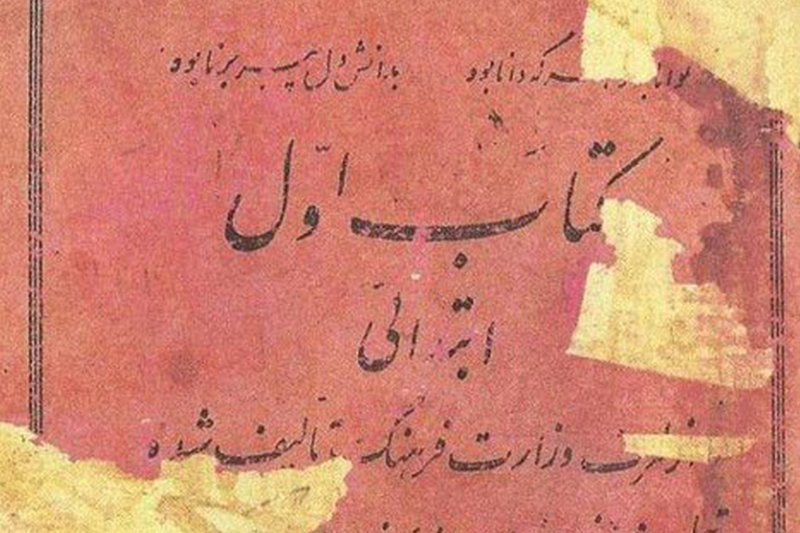 توانا بود هر که دانا بود بدانش دل پیر برنا بود
کتاب اوّل
ابتدائی
از طرف وزارت فرهنگ تألیف شده